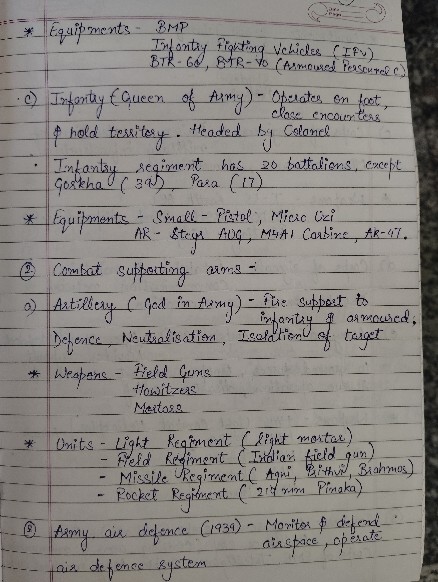 * Equipments - BMP
Infantry Fighting Vehicles (IFV)
BTR-60, BTR-70 (Armoured Personnel C)
c) Infantry (Queen of Army) - Operates on foot,
close encounters
& hold territory. Headed by Colonel
Infantry regiment has 20 battalions, except
Gorkha (39), Para (17)
* Equipments - Small - Pistol, Micro Uzi
AR - Steyr AUG, M4A1 Carbine, AK-47.
② Combat supporting arms :-
a) Artillery (God in Army) - Fire support to
infantry & armoured.
Defence, Neutralisation, Isolation of target
* Weapons - Field Guns
Howitzers
Mortars
* Units - Light Regiment (light mortar)
- Field Regiment (Indian field gun)
- Missile Regiment (Agni, Prithvi, Brahmos)
- Rocket Regiment (214 mm Pinaka)
Army air defence (1939) - Monitor & defend
airspace, operate
air defence system